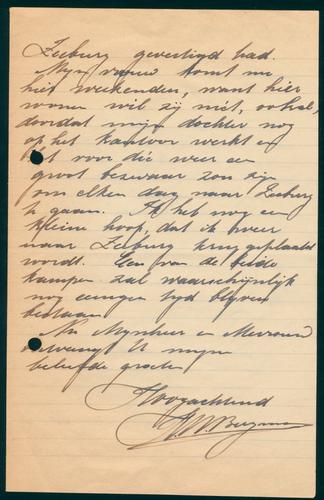 Zeeburg gevestigd had.
Mijn vrouw komt nu
hier weekenden, want hier
wonen wil zij niet, ook al,
doordat mijn dochter nog
op het kantoor werkt en
het voor die weer een
groot bezwaar zou zijn
om elken dag naar Zeeburg
te gaan. Ik heb nog een
kleine hoop, dat ik weer
naar Zeeburg terug geplaatst
wordt. Een van de beide
kampen zal waarschijnlijk
nog eenigen tijd blijven
bestaan
Nu Mijnheer en Mevrouw
ontvangt U mijne
beleefde groeten
Hoogachtend